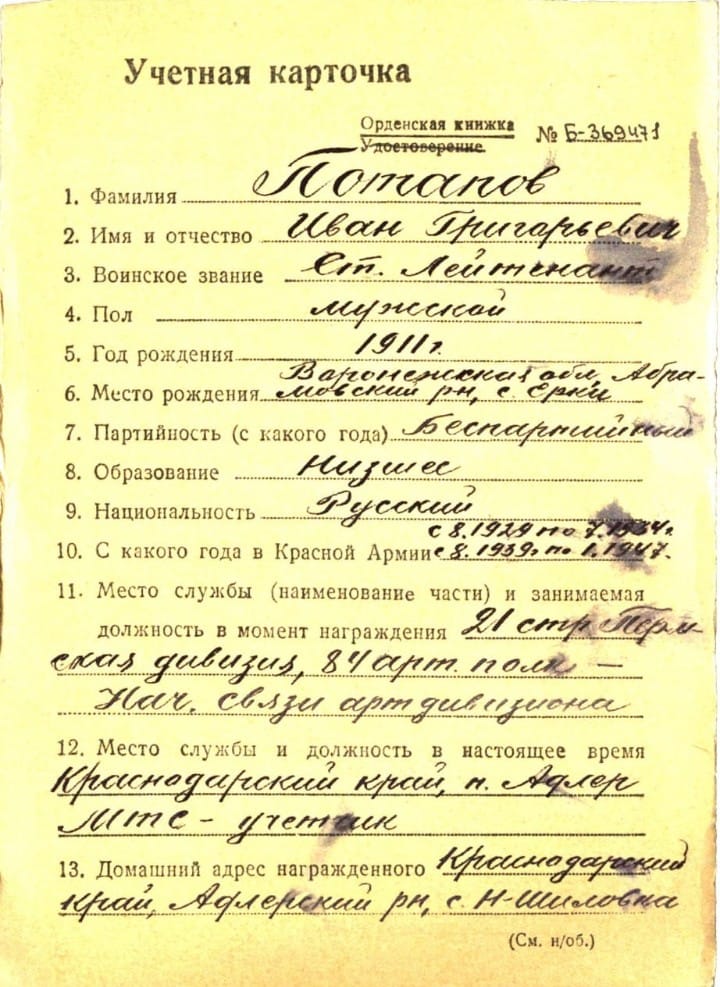 Учетная карточка
Орденская книжка № Б-369471
Удостоверение
1. Фамилия Потапов
2. Имя и отчество Иван Григарьевич
3. Воинское звание Ст. Лейтенант
4. Пол мужской
5. Год рождения 1911 г.
Варонежская обл, Абра-
6. Место рождения мовский рн, с. Ерки
7. Партийность (с какого года) Беспартийный
8. Образование Низшее
9. Национальность Русский
с 8.1929 по 7.1934г.
10. С какого года в Красной Армии с 8.1939г. по 1.1947.
11. Место службы (наименование части) и занимаемая
должность в момент награждения 21 стр Перм-
ская дивизия, 84 арт. полк —
Нач. связи артдивизиона
12. Место службы и должность в настоящее время
Краснодарский край, п. Адлер
МТС – учетчик
13. Домашний адрес награжденного Краснодарский
край, Адлерский рн, с. Н-Шиловка
(См. н/об.)